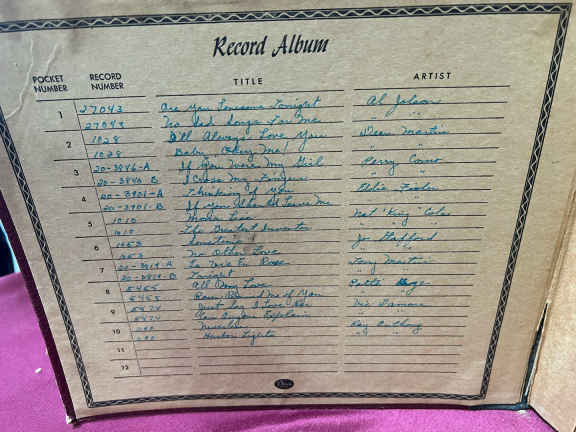 Record Album
POCKET NUMBER RECORD NUMBER TITLE ARTIST
1 27043 Are You Lonesome Tonight Al Jolson
27043 No Sad Songs For Me " "
2 1028 I'll Always Love You Dean Martin
1028 Baby, Obey Me! " "
3 20-3846-A If You Were My Girl Perry Como
20-3846 B I Cross My Fingers " "
4 20-3901-A Thinking of You Eddie Fisher
20-3901-B If You Should Leave Me " "
5 1010 Mona Lisa Nat "King" Cole
1010 The Greatest Inventor " "
6 1053 Sometime Jo Stafford
1053 No Other Love " "
7 20-3819-A La Vie En Rose Tony Martin
20-3819-B Tonight " "
8 5455 All My Love Patti Page
5455 Roses Remind Me of You
9 5474 Vic Damone
5474 Can Anyone Explain " "
10 Ray Anthony
Harbor Lights " "
11
12